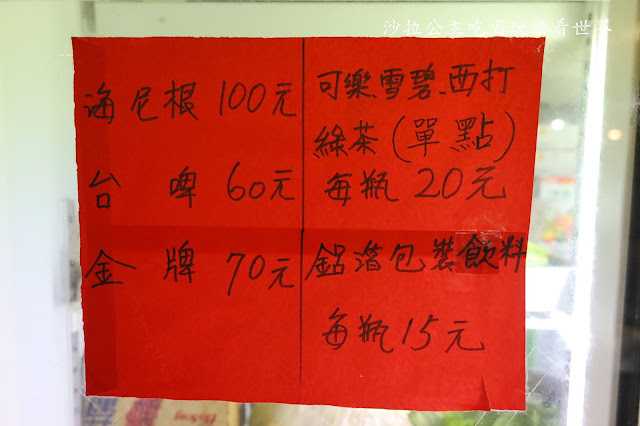 沙拉公主吃喝玩樂看世界
海尼根 100元
台啤 60元
金牌 70元
可樂.雪碧.西打
綠茶(單點)
每瓶 20元
鋁箔包裝飲料
每瓶 15元